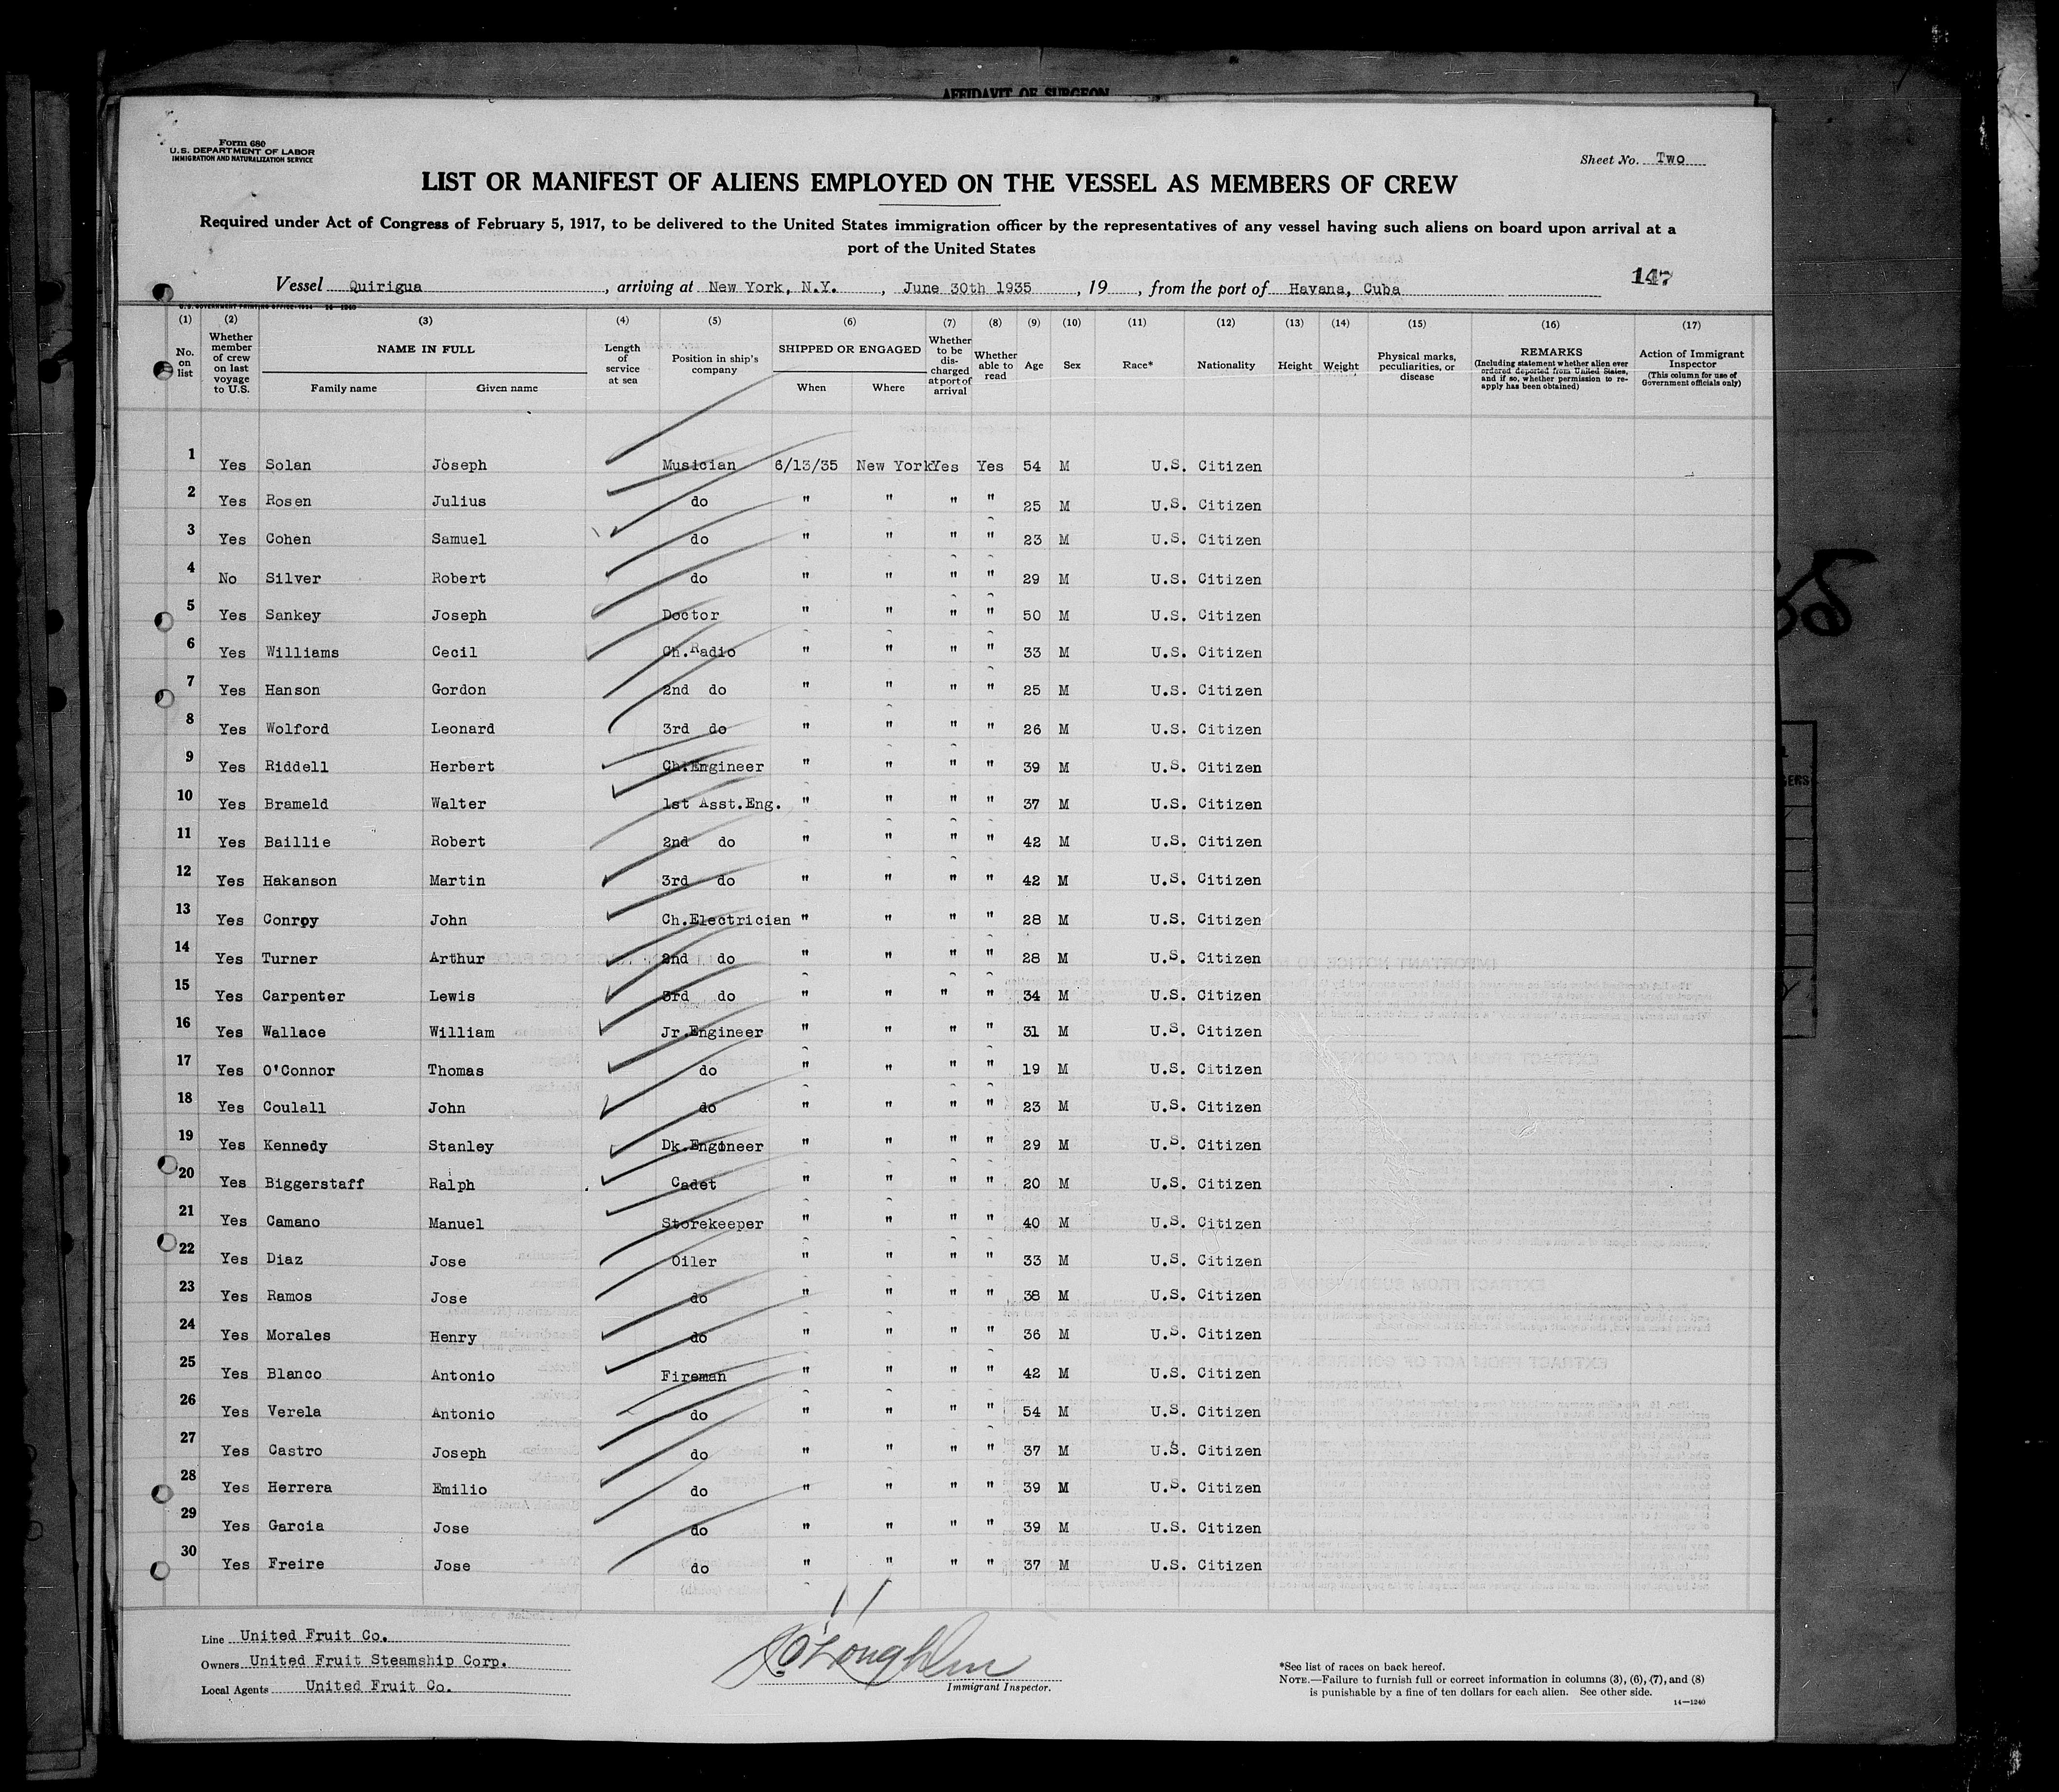 AFFIDAVIT OF SURGEON
Form 680
U.S. DEPARTMENT OF LABOR
IMMIGRATION AND NATURALIZATION SERVICE
Sheet No. Two
LIST OR MANIFEST OF ALIENS EMPLOYED ON THE VESSEL AS MEMBERS OF CREW
Required under Act of Congress of February 5, 1917, to be delivered to the United States immigration officer by the representatives of any vessel having such aliens on board upon arrival at a
port of the United States
Vessel Quirigua, arriving at New York, N.Y., June 30th 1935, 19, from the port of Havana, Cuba
147
(1) (2) (3) (4) (5) (6) (7) (8) (9) (10) (11) (12) (13) (14) (15) (16) (17)
No. on list
Whether member of crew on last voyage to U.S.
NAME IN FULL
Family name
Given name
Length of service at sea
Position in ship's company
SHIPPED OR ENGAGED
When
Where
Whether to be discharged at port of arrival
Whether able to read
Age
Sex
Race*
Nationality
Height
Weight
Physical marks, peculiarities, or disease
REMARKS
(Including statement whether alien ever ordered deported from United States, and if so, whether permission to reapply has been obtained)
Action of Immigrant Inspector
(This column for use of Government officials only)
1 Yes Solan Joseph Musician 6/13/35 New York Yes Yes 54 M U.S. Citizen
2 Yes Rosen Julius do " " " " 25 M U.S. Citizen
3 Yes Cohen Samuel do " " " " 23 M U.S. Citizen
4 No Silver Robert do " " " " 29 M U.S. Citizen
5 Yes Sankey Joseph Doctor " " " " 50 M U.S. Citizen
6 Yes Williams Cecil Ch.Radio " " " " 33 M U.S. Citizen
7 Yes Hanson Gordon 2nd do " " " " 25 M U.S. Citizen
8 Yes Wolford Leonard 3rd do " " " " 26 M U.S. Citizen
9 Yes Riddell Herbert Ch.Engineer " " " " 39 M U.S. Citizen
10 Yes Brameld Walter 1st Asst.Eng. " " " " 37 M U.S. Citizen
11 Yes Baillie Robert 2nd do " " " " 42 M U.S. Citizen
12 Yes Hakanson Martin 3rd do " " " " 42 M U.S. Citizen
13 Yes Conroy John Ch.Electrician " " " " 28 M U.S. Citizen
14 Yes Turner Arthur 2nd do " " " " 28 M U.S. Citizen
15 Yes Carpenter Lewis 3rd do " " " " 34 M U.S. Citizen
16 Yes Wallace William Jr.Engineer " " " " 31 M U.S. Citizen
17 Yes O'Connor Thomas do " " " " 19 M U.S. Citizen
18 Yes Coulall John do " " " " 23 M U.S. Citizen
19 Yes Kennedy Stanley Dk.Engineer " " " " 29 M U.S. Citizen
20 Yes Biggerstaff Ralph Cadet " " " " 20 M U.S. Citizen
21 Yes Camano Manuel Storekeeper " " " " 40 M U.S. Citizen
22 Yes Diaz Jose Oiler " " " " 33 M U.S. Citizen
23 Yes Ramos Jose do " " " " 38 M U.S. Citizen
24 Yes Morales Henry do " " " " 36 M U.S. Citizen
25 Yes Blanco Antonio Fireman " " " " 42 M U.S. Citizen
26 Yes Verela Antonio do " " " " 54 M U.S. Citizen
27 Yes Castro Joseph do " " " " 37 M U.S. Citizen
28 Yes Herrera Emilio do " " " " 39 M U.S. Citizen
29 Yes Garcia Jose do " " " " 39 M U.S. Citizen
30 Yes Freire Jose do " " " " 37 M U.S. Citizen
Line United Fruit Co.
Owners United Fruit Steamship Corp.
Local Agents United Fruit Co.
O'Loughlin
Immigrant Inspector.
*See list of races on back hereof.
NOTE.—Failure to furnish full or correct information in columns (3), (6), (7), and (8)
is punishable by a fine of ten dollars for each alien. See other side.
14—1240